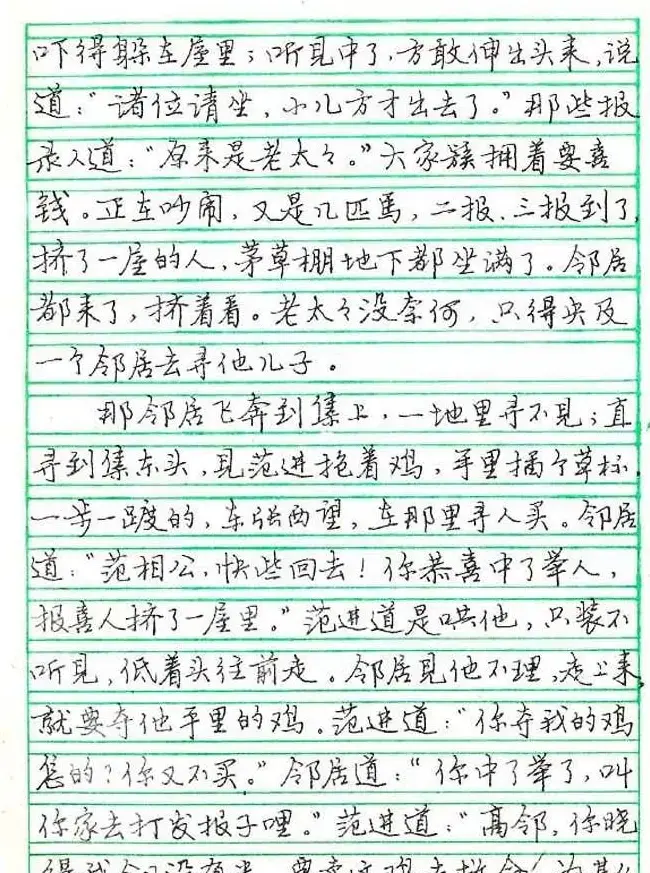 吓得躲在屋里；听见中了，方敢伸出头来，说
道：“诸位请坐，小儿方才出去了。”那些报
录人道：“原来是老太々。”大家簇拥着要喜
钱。正在吵闹，又是几匹馬，二报、三报到了，
挤了一屋的人，茅草棚地下都坐满了。邻居
都来了，挤着看。老太々没奈何，只得央及
一个邻居去寻他儿子。
那邻居飞奔到集上，一地里寻不见；直
寻到集东头，见范进抱着鸡，手里插个草标，
一步一踱的，东张西望，在那里寻人买。邻居
道：“范相公，快些回去！你恭喜中了举人，
报喜人挤了一屋里。”范进道是哄他，只装不
听见，低着头往前走。邻居见他不理，走上来，
就要夺他手里的鸡。范进道：“你夺我的鸡
怎的？你又不买。”邻居道：“你中了举了，叫
你家去打发报子哩。”范进道：“高邻，你晓